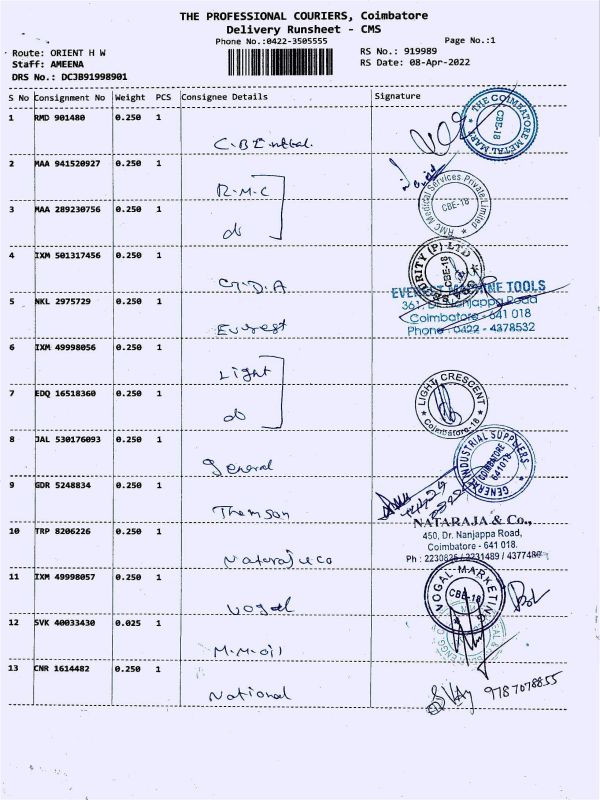 THE PROFESSIONAL COURIERS, Coimbatore
Delivery Runsheet - CMS
Phone No.:0422-3505555
Page No.:1
Route: ORIENT H W
RS No.: 919989
Staff: AMEENA
RS Date: 08-Apr-2022
DRS No.: DCJB91998901
S No Consignment No Weight PCS Consignee Details Signature
1 RMD 901480 0.250 1
THE COIMBATORE METAL MART
CBE-18
2 MAA 941520927 0.250 1
R.M.C
RMC Medical Services Private Limited
CBE-18
3 MAA 289230756 0.250 1
do
4 IXM 501317456 0.250 1
SECURITY (P) LTD
CBE-18
EVEREST MACHINE TOOLS
361, Dr. Nanjappa Road
Coimbatore - 641 018
Phone : 0422 - 4378532
5 NKL 2975729 0.250 1
Everest
6 IXM 49998056 0.250 1
Light
7 EDQ 16518360 0.250 1
do
LIGHT CRESCENT
Coimbatore-18
8 JAL 530176093 0.250 1
General
GENERAL INDUSTRIAL SUPPLIERS
COIMBATORE
641018
9 GDR 5248834 0.250 1
Thomson
NATARAJA & Co.,
450, Dr. Nanjappa Road,
Coimbatore - 641 018.
10 TRP 8206226 0.250 1
Nataraj & co
Ph : 2230826 / 2231489 / 4377480
11 IXM 49998057 0.250 1
Vogal
VOGAL MARKETING
CBE-18
12 SVK 40033430 0.025 1
M.M.oil
13 CNR 1614482 0.250 1
National
9787078855